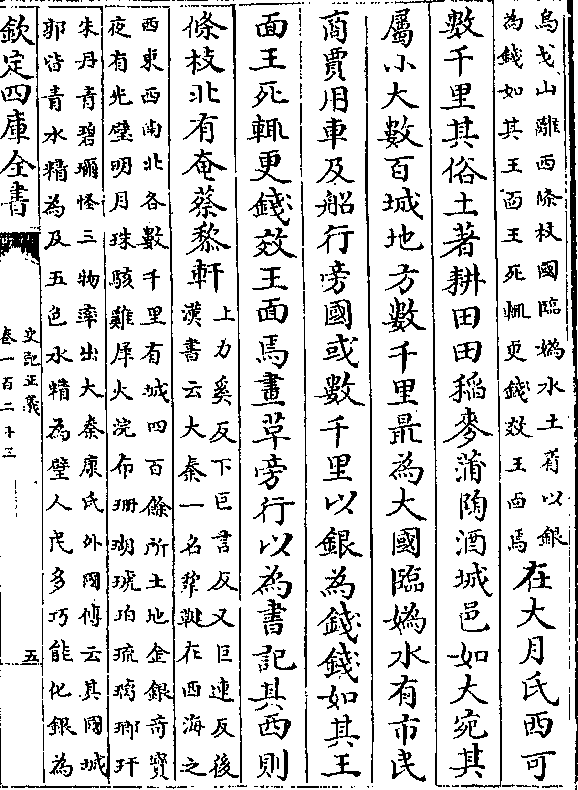 烏弋山離西條枝國臨媯水土著以銀
為錢如其王面王死輒更錢效王面焉
在大月氏西可
數千里其俗土著耕田田稻麥蒲陶酒城邑如大宛其
屬小大數百城地方數千里最為大國臨媯水有市民
商賈用車及船行旁國或數千里以銀為錢錢如其王
面王死輒更錢效王面焉畫革旁行以為書記其西則
條枝北有奄蔡黎軒
上力奚反下巨言反又巨連反後
漢書云大秦一名犂鞬在西海之
西東西南北各數千里有城四百餘所土地金銀奇寶
夜有光璧明月珠駭雞犀火浣布珊瑚琥珀琉璃瑯玕
朱丹青碧珍怪之物率出大秦康氏外國傳云其國城
郭皆青水精為及五色水精為壁人民多巧能化銀為
欽定四庫全書
史記正義
卷一百二十三
五